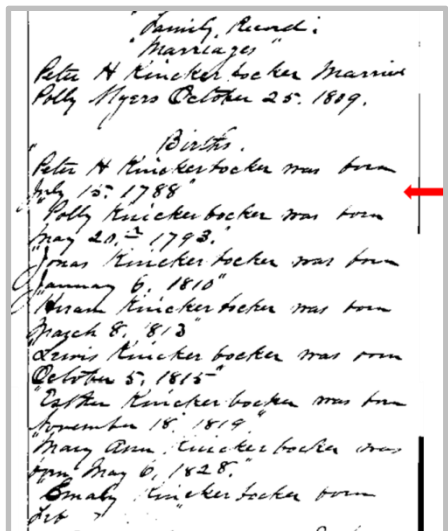 "Family Record."
"Marriages"
Peter H Knickerbocker Married
Polly Myers October 25. 1809.
"Births.
Peter H Knickerbocker was born
July 15. 1788"
"Polly Knickerbocker was born
May 20th 1793."
"Jonas Knickerbocker was born
January 6, 1810"
"Hiram Knickerbocker was born
March 8, 1813"
"Lewis Knickerbocker was born
October 5, 1815"
"Esther Knickerbocker was born
November 18, 1819."
"Mary Ann Knickerbocker was
born May 6, 1828."
Emaly Knickerbocker born
Feb